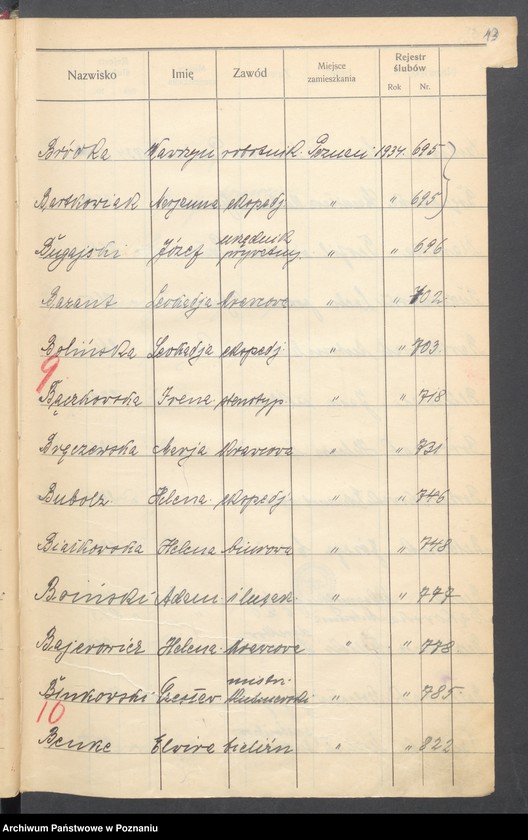 13
Nazwisko Imię Zawód Miejsce zamieszkania Rejestr ślubów
Rok Nr.
Bródka Wawrzyn robotnik Poznań 1934 695
Bartkowiak Marjanna ekspedj. " " 695
Bugajski Józef urzędnik prywatny " " 696
Bazant Leokadja krawcowa " " 702
Bolińska Leokadja ekspedj. " " 703
9
Bączkowska Irena stenotyp. " " 718
Bręczewska Marja krawcowa " " 731
Bubolz Helena ekspedj. " " 746
Białkowska Helena biurowa " " 748
Boiński Adam ślusarz " " 777
Bajerowicz Helena krawcowa " " 778
Binkowski Czesław mistrz " " 785
10
Benke Elvira bieliźn " " 822
Archiwum Państwowe w Poznaniu